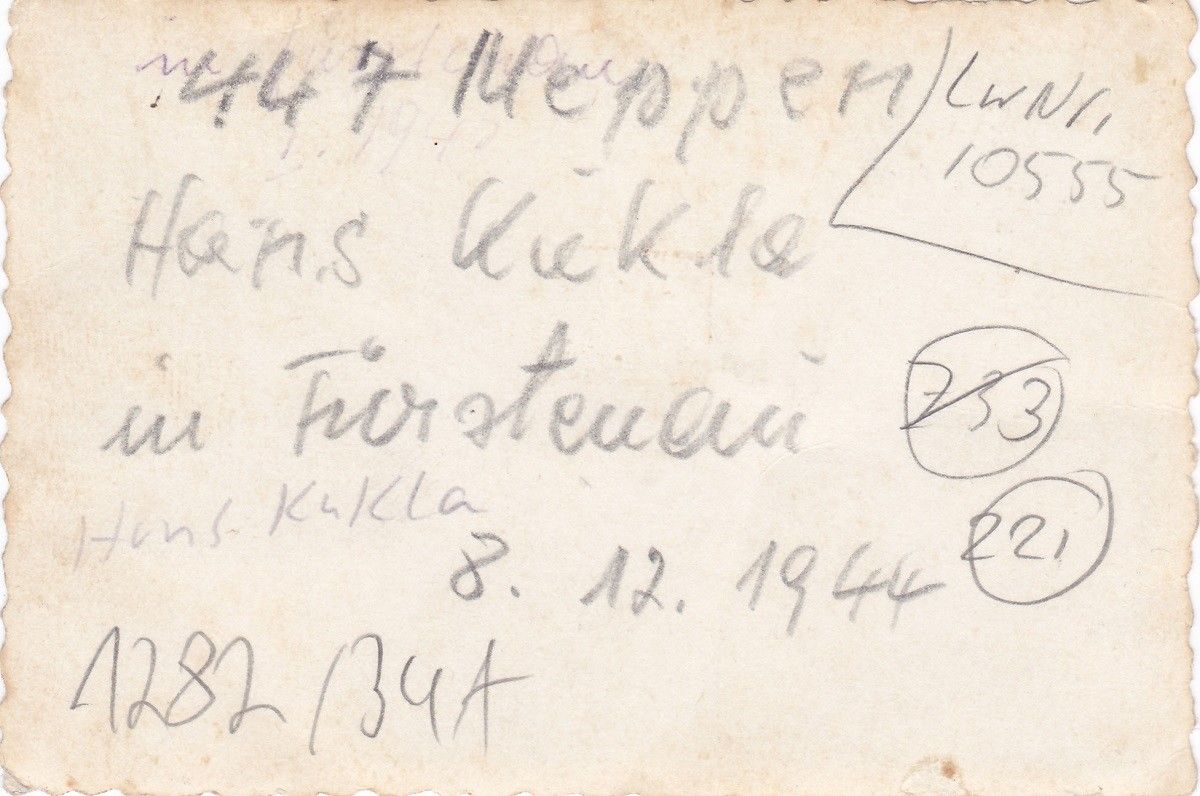 447 Meppen
LwNr.
10555
Hans Kukla
in Fürstenau
733
Hans Kukla
221
8. 12. 1944
1282 /34A